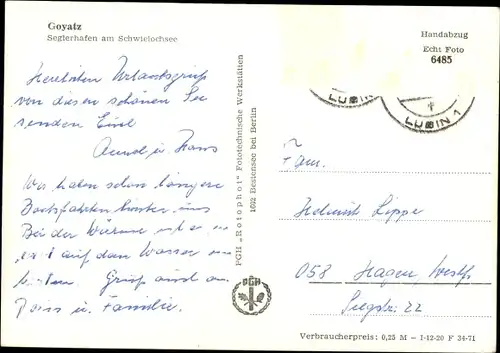 Goyatz
Seglerhafen am Schwielochsee
Handabzug
Echt Foto
6485
Herzlichen Urlaubsgruß
von diesen schönen See
senden Euch
Hans
Wir haben schon längere
Bootsfahrten hinter uns
Bei der Wärme ist es
auf dem Wasser am
besten Gruß auch an
u. Familie.
PGH „Rotophot" Fototechnische Werkstätten
1602 Bestensee bei Berlin
PGH
LUBBIN 1
Fam.
Helmut Lippe
058 Hagen/Westf
Siegstr. 22
Verbraucherpreis: 0,25 M – I-12-20 F 34-71